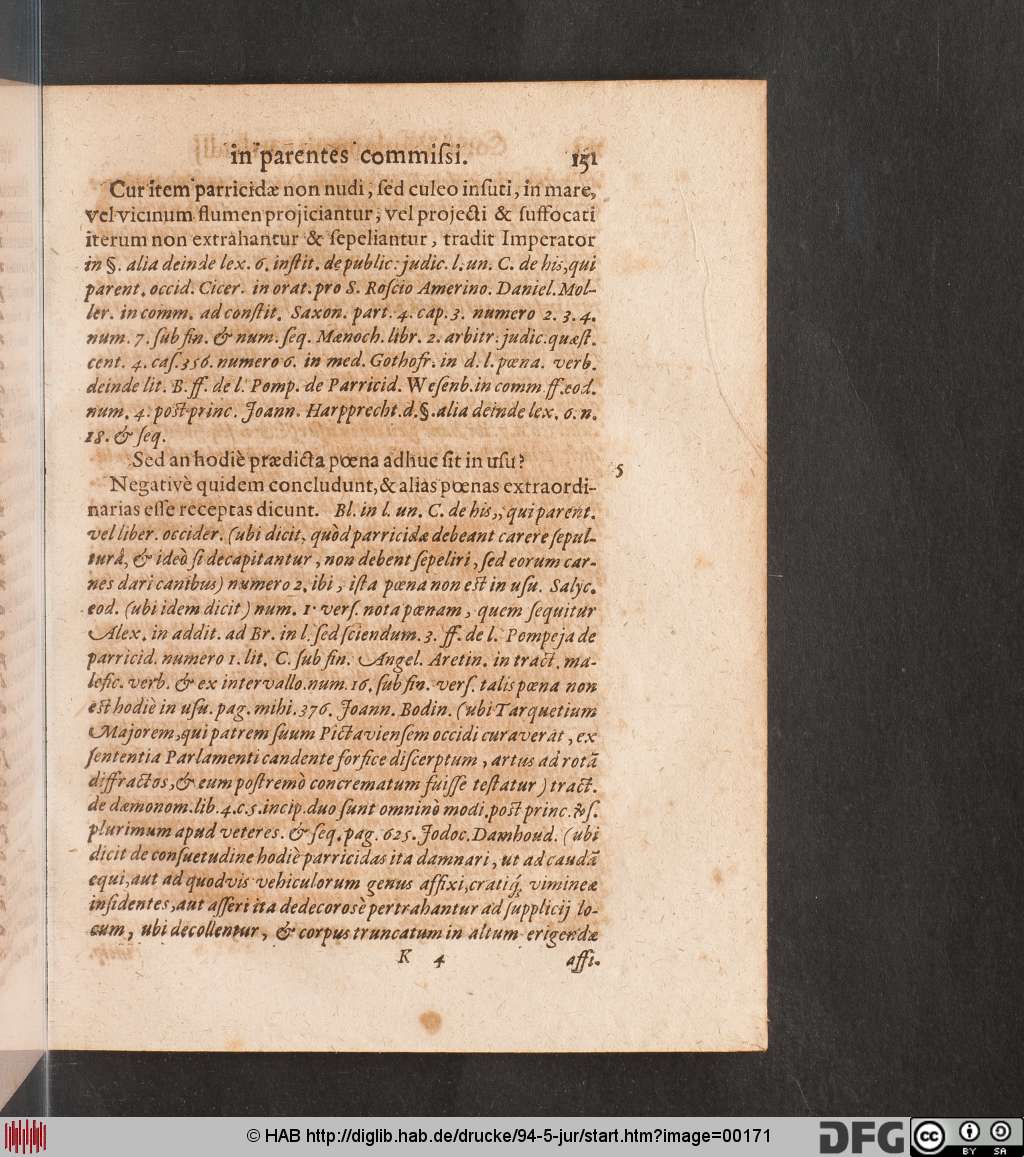 in parentes commiſsi. 151
Cur item parricidæ non nudi, ſed culeo inſuti, in mare,
vel vicinum flumen projiciantur, vel projecti & ſuffocati
iterum non extrahantur & ſepeliantur, tradit Imperator
in §. alia deinde lex. 6. inſtit. de public: judic. l. un. C. de his, qui
parent. occid. Cicer. in orat. pro S. Roſcio Amerino. Daniel. Mol-
ler. in comm. ad conſtit. Saxon. part. 4. cap. 3. numero 2. 3. 4.
num. 7. ſub fin. & num. ſeq. Mænoch. libr. 2. arbitr: judic. quæſt.
cent. 4. caſ. 356. numero 6. in med. Gothofr. in d. l. pœna. verb.
deinde lit. B. ff. de l. Pomp. de Parricid. Weſenb. in comm ff. eod.
num. 4. poſt princ. Joann. Harpprecht. d. §. alia deinde lex. 6. n.
18. & ſeq.
Sed an hodiè prædicta pœna adhuc ſit in uſu? 5
Negativè quidem concludunt, & alias pœnas extraordi-
narias eſſe receptas dicunt. Bl. in l. un. C. de his,, qui parent.
vel liber. occider. (ubi dicit, quòd parricidæ debeant carere ſepul-
turâ, & ideò ſi decapitantur, non debent ſepeliri, ſed eorum car-
nes dari canibus) numero 2. ibi, iſta pœna non eſt in uſu. Salyc.
eod. (ubi idem dicit) num. 1. verſ. nota pœnam, quem ſequitur
Alex. in addit. ad Br. in l. ſed ſciendum. 3. ff. de l. Pompeja de
parricid. numero 1. lit. C. ſub fin. Angel. Aretin. in tract. ma-
lefic. verb. & ex intervallo. num. 16. ſub fin. verſ. talis pœna non
eſt hodiè in uſu. pag. mihi. 376. Joann. Bodin. (ubi Tarquetium
Majorem, qui patrem ſuum Pictavienſem occidi curaverat, ex
ſententia Parlamenti candente forfice diſcerptum, artus ad rotã
diffractos, & eum poſtremò concrematum fuiſſe teſtatur) tract.
de dæmonom. lib. 4. c. 5. incip. duo ſunt omninò modi. poſt princ. & ſ.
plurimum apud veteres. & ſeq. pag. 625. Jodoc. Damhoud. (ubi
dicit de conſuetudine hodiè parricidas ita damnari, ut ad caudã
equi, aut ad quodvis vehiculorum genus affixi, cratiq́; vimineæ
inſidentes, aut aſſeri ita dedecorosè pertrahantur ad ſupplicij lo-
cum, ubi decollentur, & corpus truncatum in altum erigendæ
K 4 affi.
© HAB http://diglib.hab.de/drucke/94-5-jur/start.htm?image=00171
DFG
cc BY SA